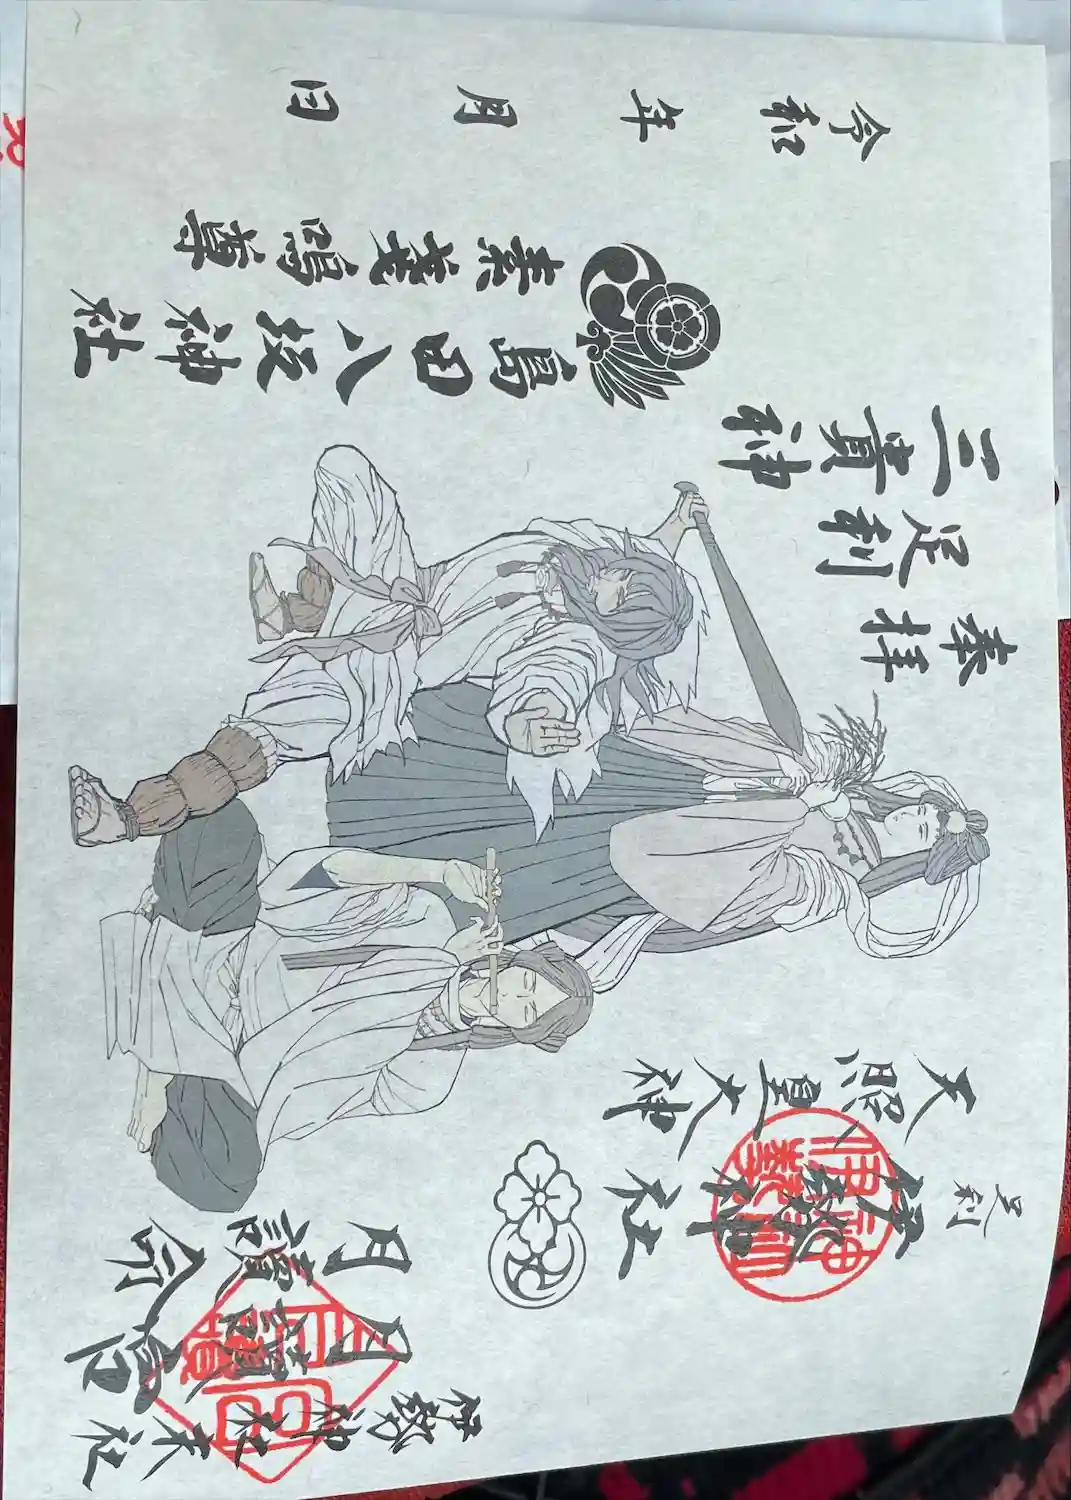 奉拝
足利
三貴神
天照皇大神
足利
伊勢神社
伊勢神社末社
月讀宮
月讀命
島田八坂神社
素戔嗚尊
令和 年 月 日